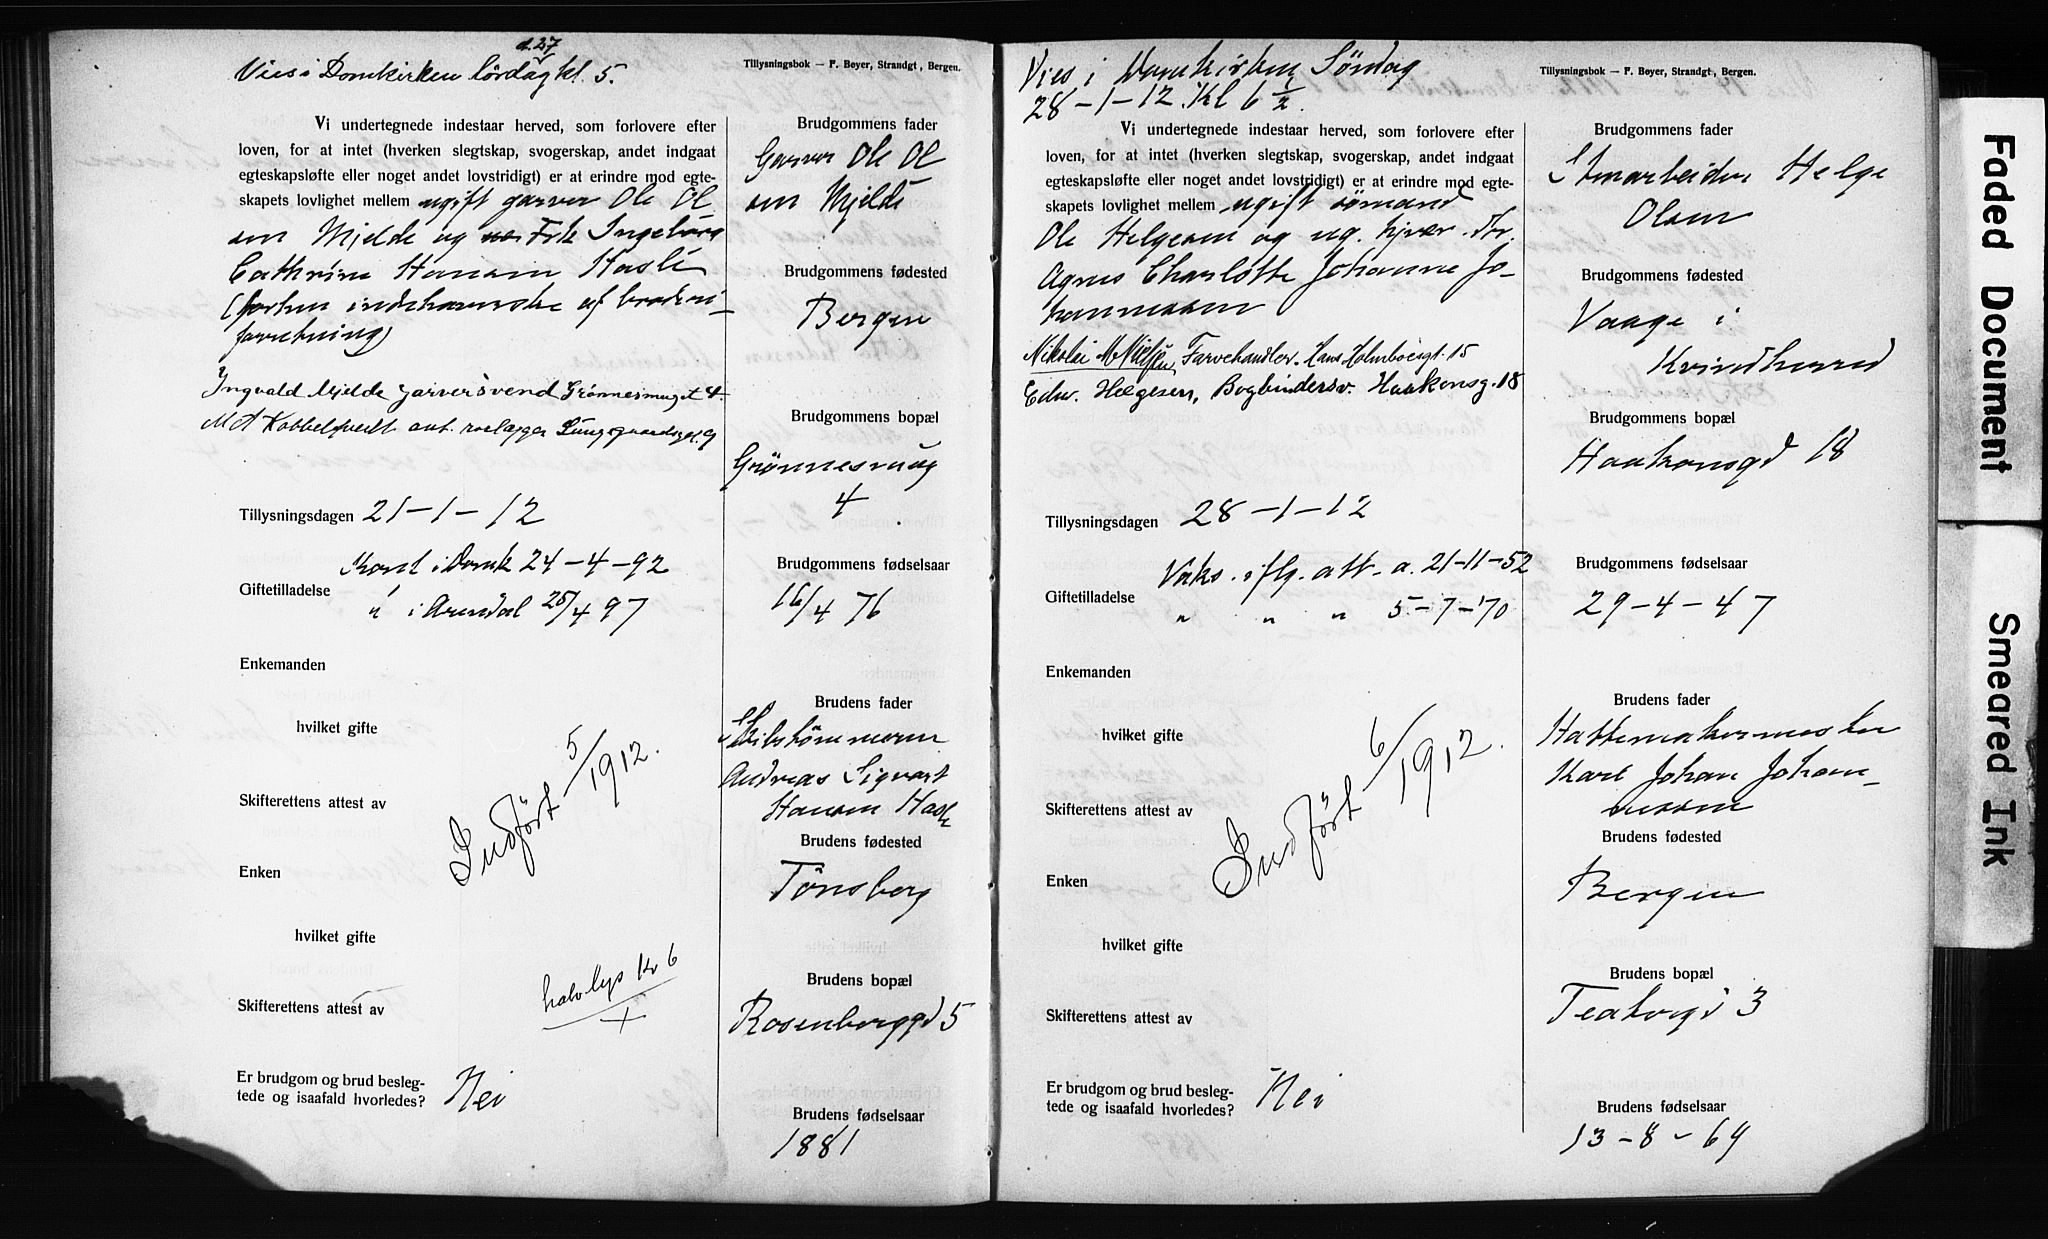 d. 27
Vies i Domkirken lördag kl. 5.
Tillysningsbok — F. Beyer, Strandgt, Bergen.
Vi undertegnede indestaar herved, som forlovere efter
loven, for at intet (hverken slegtskap, svogerskap, andet indgaat
egteskapsløfte eller noget andet lovstridigt) er at erindre mod egte-
skapets lovlighet mellem ugift garver Ole Ol
sen Mjelde og Frk Ingeborg
Cathrine Hansen Hasle
(forhen indehaverske af broderi-
forretning)
Ingvald Mjelde garversvend Grønnesmuget 4.
M A Kobbeltvedt aut. rørlægger Lungegaardsgt. 9
Tillysningsdagen 21 – 1 – 12
Konf i Domk 24 – 4 – 92
Giftetilladelse " i Arendal 25/4 97
Enkemanden
hvilket gifte
Skifterettens attest av
Indført 5/1912.
Enken
hvilket gifte
halv lys Kr 6
Skifterettens attest av
Er brudgom og brud besleg-
tede og isaafald hvorledes? Nei
Brudgommens fader
Garver Ole Ol
sen Mjelde
Brudgommens fødested
Bergen
Brudgommens bopæl
Grønnesmug
4
Brudgommens fødselsaar
16/4 76
Brudens fader
Skibstömmerm
Andreas Sigvart
Hansen Hasle
Brudens fødested
Tønsberg
Brudens bopæl
Rosenberggd 5
Brudens fødselsaar
1881
Vies i Domkirken Söndag
28 – 1 – 12. Kl 6 1/2
Tillysningsbok — F. Beyer, Strandgt, Bergen.
Vi undertegnede indestaar herved, som forlovere efter
loven, for at intet (hverken slegtskap, svogerskap, andet indgaat
egteskapsløfte eller noget andet lovstridigt) er at erindre mod egte-
skapets lovlighet mellem ugift sømand
Ole Helgesen og ug. hjvær. Frk.
Agnes Charlotte Johanne Jo-
hannessen
Nikolai M Nielsen, Farvehandler. Hans Holmboesgt. 15
Edw. Helgesen, Bogbindersv. Haakonsg. 18
Tillysningsdagen 28 – 1 – 12
Vaks. iflg. att. a. 21-11-52
Giftetilladelse " " " 5 – 7 – 70
Enkemanden
hvilket gifte
Skifterettens attest av
Indført 6/1912.
Enken
hvilket gifte
Skifterettens attest av
Er brudgom og brud besleg-
tede og isaafald hvorledes? Nei
Brudgommens fader
Stenarbeider Helge
Olsen
Brudgommens fødested
Vaage i
Kvindherred
Brudgommens bopæl
Haakonsgd 18
Brudgommens fødselsaar
29 – 4 – 47
Brudens fader
Hattemakermester
Karl Johan Johan-
nessen
Brudens fødested
Bergen
Brudens bopæl
Teatergd 3
Brudens fødselsaar
13 – 8 – 64
Faded Document
Smeared Ink